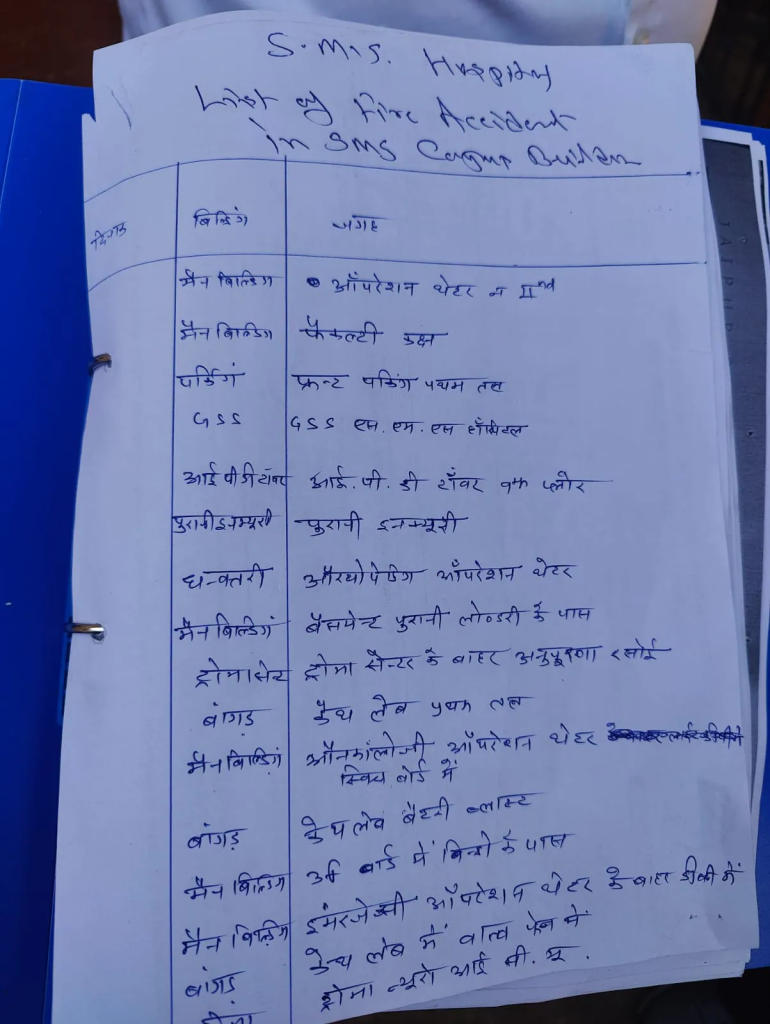 S.M.S. Hospital
List of Fire Accident
in SMS Campus Buildin
दिनांक बिल्डिंग जगह
मैन बिल्डिग ऑपरेशन थेटर न IInd
मैन बिल्डिग फैकल्टी कक्ष
पर्किगं फ्रन्ट पर्किग प्रथम तल
GSS GSS एस.एम.एस हॉस्पिटल
आई पी डी टॉवर आई.पी.डी टॉवर 9th फ्लोर
पुरानी इनक्यूरी पुरानी इनक्यूरी
धन्वतरी ऑरथोपेडिग ऑपरेशन थेटर
मैन बिल्डिगं बैसमेन्ट पुरानी लोन्डरी के पास
ट्रोमा सेन्ट ट्रोमा सैन्टर के बाहर अनुपूरणा रसोई
बांगड़ कैथ लेब प्रथम तल
मैन बिल्डिगं ऑनकॉलोजी ऑपरेशन थेटर
स्विच बोर्ड में
बांगड़ कैथ लेब बैटरी ब्लास्ट
मैन बिल्डिग वार्ड में के पास
मैन बिल्डिग इमरजेन्सी ऑपरेशन थेटर के बाहर डीबी में
बांगड़ कैथ लेब में में
ट्रोमा ट्रोमा न्यूरो आई सी.यू.
JAIPUR